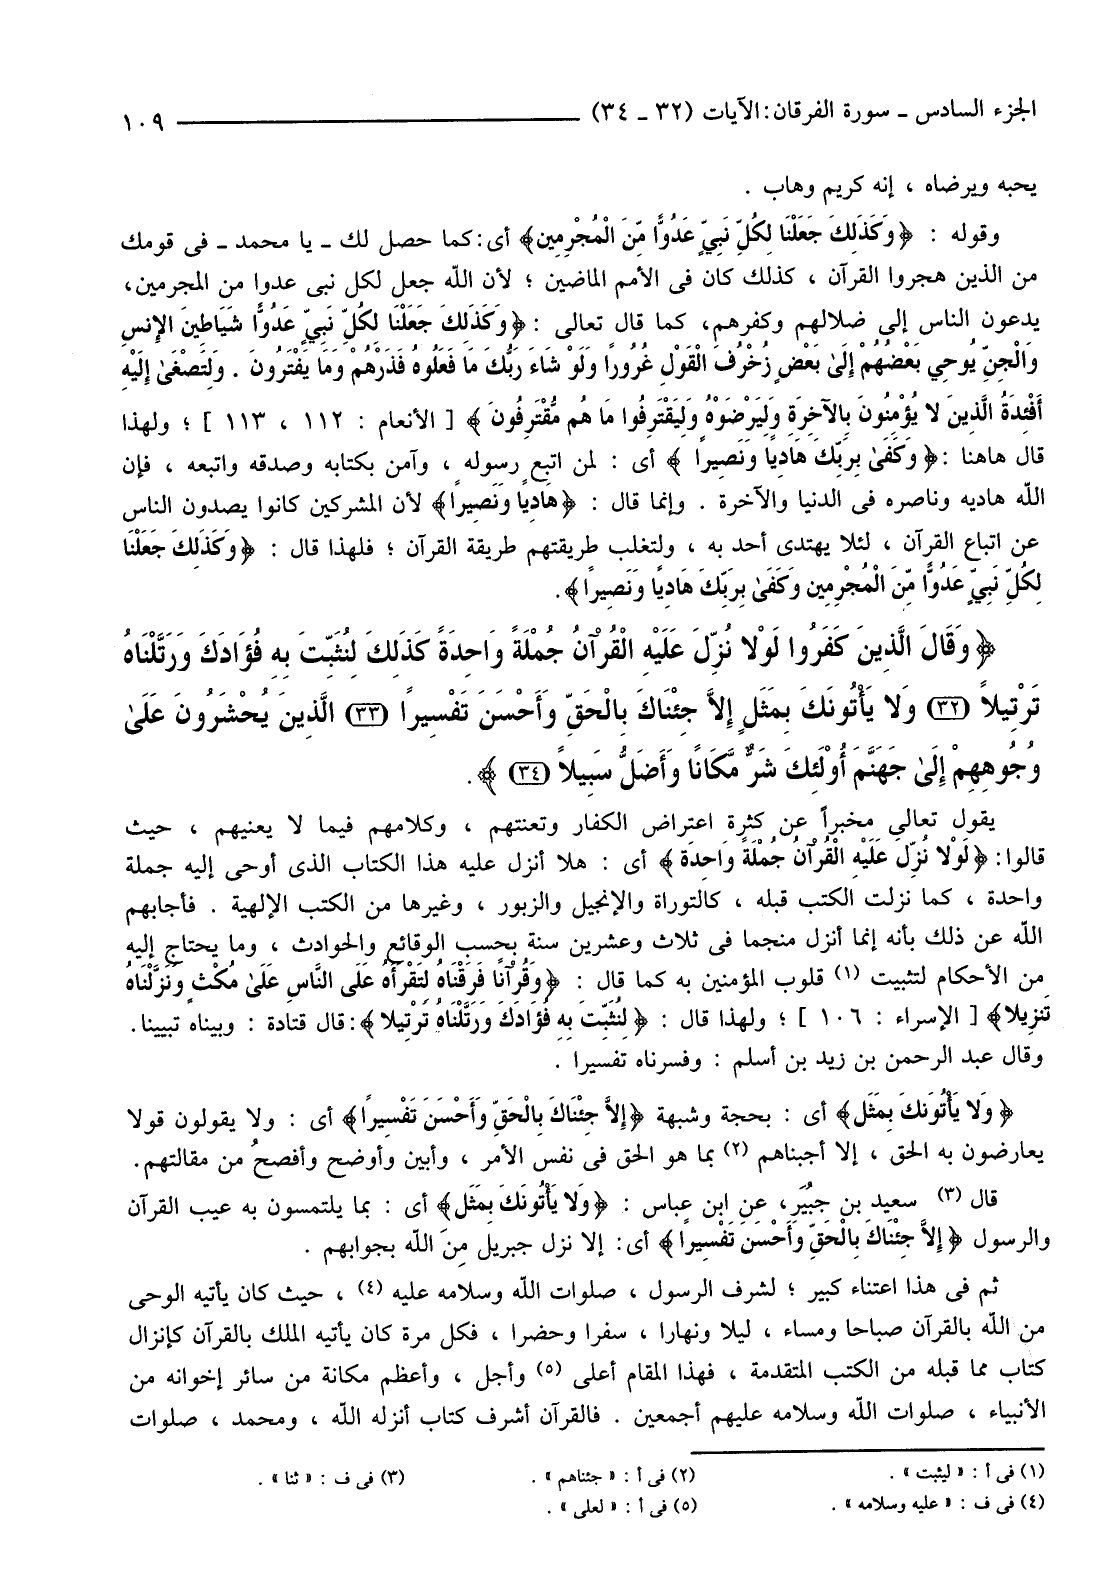 الجزء السادس ـ سورة الفرقان: الآيات (٣٢ ـ ٣٤) ١٠٩
يحبه ويرضاه ، إنه كريم وهاب .
وقوله : ﴿ وَكَذَلِكَ جَعَلْنَا لِكُلِّ نَبِيٍّ عَدُوًّا مِّنَ الْمُجْرِمِين﴾ أى: كما حصل لك ـ يا محمد ـ فى قومك
من الذين هجروا القرآن ، كذلك كان فى الأمم الماضين ؛ لأن الله جعل لكل نبى عدوا من المجرمين،
يدعون الناس إلى ضلالهم وكفرهم، كما قال تعالى : ﴿ وَكَذَلِكَ جَعَلْنَا لِكُلِّ نَبِيٍّ عَدُوًّا شَيَاطِينَ الإِنسِ
وَالْجِنِّ يُوحِي بَعْضُهُمْ إِلَىٰ بَعْضٍ زُخْرُفَ الْقَوْلِ غُرُورًا وَلَوْ شَاءَ رَبُّكَ مَا فَعَلُوهُ فَذَرْهُمْ وَمَا يَفْتَرُونَ . وَلِتَصْغَىٰ إِلَيْهِ
أَفْئِدَةُ الَّذِينَ لا يُؤْمِنُونَ بِالآخِرَةِ وَلِيَرْضَوْهُ وَلِيَقْتَرِفُوا مَا هُم مُّقْتَرِفُونَ ﴾ [ الأنعام : ١١٢ ، ١١٣ ] ؛ ولهذا
قال هاهنا : ﴿ وَكَفَىٰ بِرَبِّكَ هَادِيًا وَنَصِيرًا ﴾ أى : لمن اتبع رسوله ، وآمن بكتابه وصدقه واتبعه ، فإن
الله هاديه وناصره فى الدنيا والآخرة . وإنما قال : ﴿ هَادِيًا وَنَصِيرًا﴾ لأن المشركين كانوا يصدون الناس
عن اتباع القرآن ، لئلا يهتدى أحد به ، ولتغلب طريقتهم طريقة القرآن ؛ فلهذا قال : ﴿ وَكَذَلِكَ جَعَلْنَا
لِكُلِّ نَبِيٍّ عَدُوًّا مِّنَ الْمُجْرِمِين وَكَفَىٰ بِرَبِّكَ هَادِيًا وَنَصِيرًا ﴾.
﴿ وَقَالَ الَّذِينَ كَفَرُوا لَوْلا نُزِّلَ عَلَيْهِ الْقُرْآنُ جُمْلَةً وَاحِدَةً كَذَلِكَ لِنُثَبِّتَ بِهِ فُؤَادَكَ وَرَتَّلْنَاهُ
تَرْتِيلاً (٣٢) وَلا يَأْتُونَكَ بِمَثَلٍ إِلاَّ جِئْنَاكَ بِالْحَقِّ وَأَحْسَنَ تَفْسِيرًا (٣٣) الَّذِينَ يُحْشَرُونَ عَلَىٰ
وُجُوهِهِمْ إِلَىٰ جَهَنَّمَ أُوْلَئِكَ شَرٌّ مَّكَانًا وَأَضَلُّ سَبِيلاً (٣٤) ﴾.
يقول تعالى مخبراً عن كثرة اعتراض الكفار وتعنتهم ، وكلامهم فيما لا يعنيهم ، حيث
قالوا: ﴿ لَوْلا نُزِّلَ عَلَيْهِ الْقُرْآنُ جُمْلَةً وَاحِدَة ﴾ أى : هلا أنزل عليه هذا الكتاب الذى أوحى إليه جملة
واحدة ، كما نزلت الكتب قبله ، كالتوراة والإنجيل والزبور ، وغيرها من الكتب الإلهية . فأجابهم
الله عن ذلك بأنه إنما أنزل منجما فى ثلاث وعشرين سنة بحسب الوقائع والحوادث ، وما يحتاج إليه
من الأحكام لتثبيت (١) قلوب المؤمنين به كما قال : ﴿ وَقُرْآنًا فَرَقْنَاهُ لِتَقْرَأَهُ عَلَى النَّاسِ عَلَىٰ مُكْثٍ وَنَزَّلْنَاهُ
تَنزِيلا﴾ [ الإسراء : ١٠٦ ] ؛ ولهذا قال : ﴿ لِنُثَبِّتَ بِهِ فُؤَادَكَ وَرَتَّلْنَاهُ تَرْتِيلا ﴾: قال قتادة : وبيناه تبيينا.
وقال عبد الرحمن بن زيد بن أسلم : وفسرناه تفسيرا .
﴿ وَلا يَأْتُونَكَ بِمَثَل﴾ أى : بحجة وشبهة ﴿إِلاَّ جِئْنَاكَ بِالْحَقِّ وَأَحْسَنَ تَفْسِيرًا﴾ أى : ولا يقولون قولا
يعارضون به الحق ، إلا أجبناهم (٢) بما هو الحق فى نفس الأمر ، وأبين وأوضح وأفصحُ من مقالتهم.
قال (٣) سعيد بن جبُيَر، عن ابن عباس : ﴿ وَلا يَأْتُونَكَ بِمَثَل﴾ أى : بما يلتمسون به عيب القرآن
والرسول ﴿ إِلاَّ جِئْنَاكَ بِالْحَقِّ وَأَحْسَنَ تَفْسِيرًا ﴾ أى: إلا نزل جبريل مِنَ الله بجوابهم .
ثم فى هذا اعتناء كبير ؛ لشرف الرسول ، صلوات الله وسلامه عليه (٤) ، حيث كان يأتيه الوحى
من الله بالقرآن صباحا ومساء ، ليلا ونهارا ، سفرا وحضرا ، فكل مرة كان يأتيه الملك بالقرآن كإنزال
كتاب مما قبله من الكتب المتقدمة ، فهذا المقام أعلى (٥) وأجل ، وأعظم مكانة من سائر إخوانه من
الأنبياء ، صلوات الله وسلامه عليهم أجمعين . فالقرآن أشرف كتاب أنزله الله ، ومحمد ، صلوات
(١) فى أ : « ليثبت» . (٢) فى أ : « جئناهم » . (٣) فى ف : « ثنا » .
(٤) فى ف : « عليه وسلامه» . (٥) فى أ : « لعلى » .